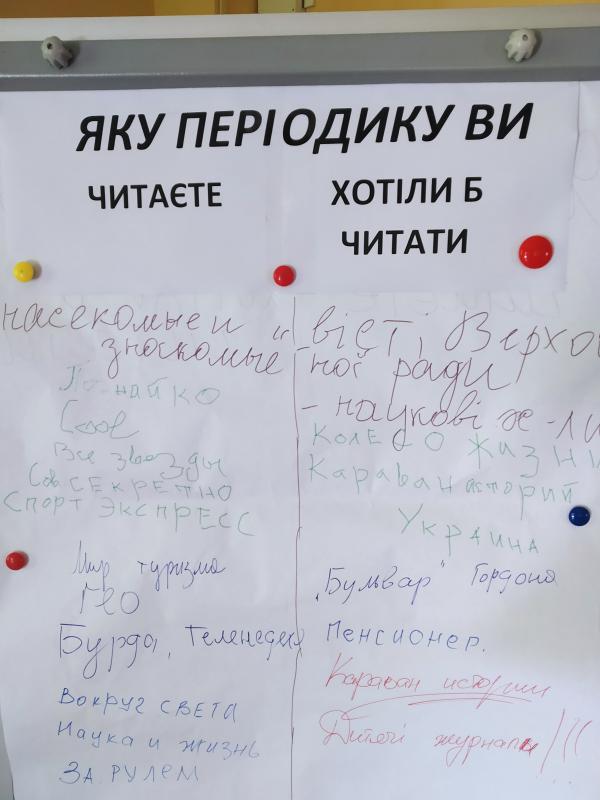 ЯКУ ПЕРІОДИКУ ВИ
ЧИТАЄТЕ
насекомые и
знаскомые"
Познайко
Cool
Все звезды
Сов СЕКРЕТНО
СПОРТ ЭКСПРЕСС
Мир туризма
ГЕО
Бурда, Теленеделя
Вокруг света
Наука и жизнь
За рулем
ХОТІЛИ Б
ЧИТАТИ
"вісті, Верхо
ної ради
- наукові ж-ли
КОЛЕСО ЖИЗНИ
Караван историй
УКРАИНА
„Бульвар" Гордона
Пенсионер.
Караван истории
Дитячі журнали!!!